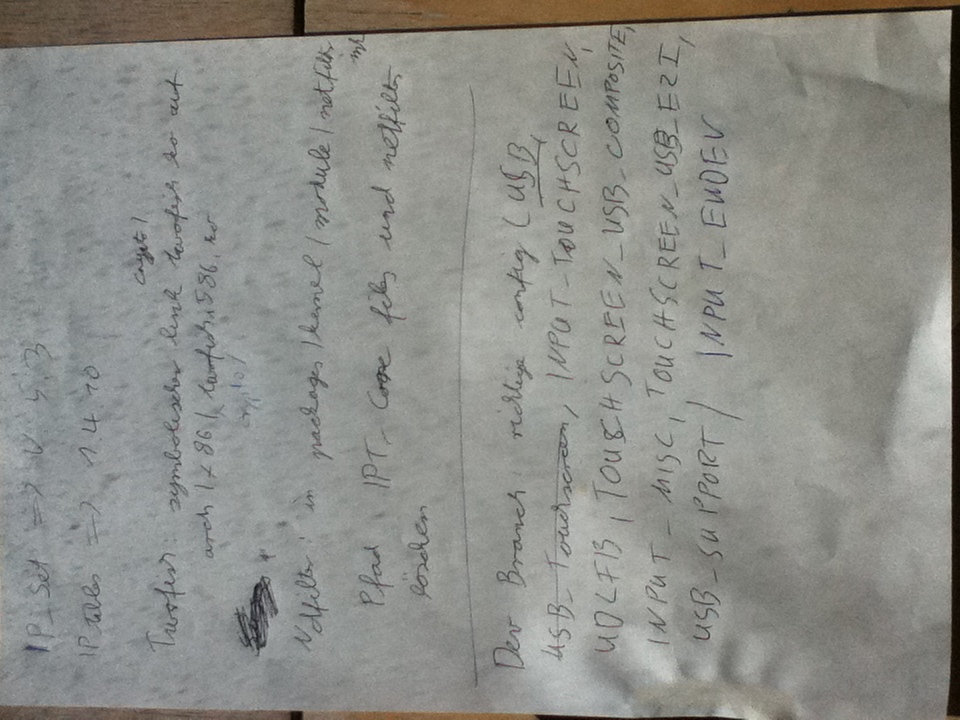 IP_Set => V. 5.3
IPtables => 1.4.10
crypto/
Twofish: symbolischer link twofish.ko auf
arch/x86/twofish-i586.ko
crypto/
Ndfilter: in packages/kernel/module/netfilter
mk
Pfad IPT_Core files und netfilter
löschen
Dev Branch: richtige config (USB,
USB_Touchscreen, INPUT_TOUCHSCREEN,
UDLFB, TOUCHSCREEN_USB_COMPOSITE,
INPUT_MISC, TOUCHSCREEN_USB_E2I,
USB_SUPPORT) INPUT_EVDEV